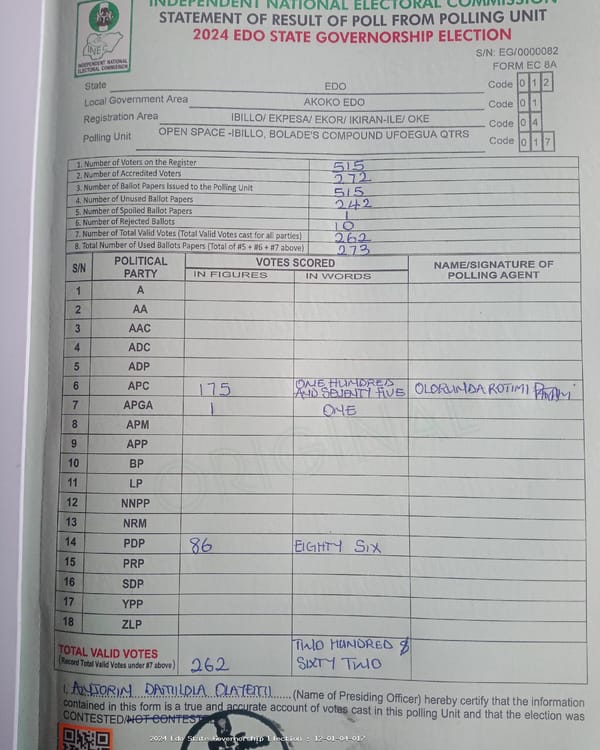 INDEPENDENT NATIONAL ELECTORAL COMMISSION
STATEMENT OF RESULT OF POLL FROM POLLING UNIT
2024 EDO STATE GOVERNORSHIP ELECTION
INEC
INDEPENDENT NATIONAL
ELECTORAL COMMISSION
S/N: EG/0000082
FORM EC 8A
State EDO Code 0 1 2
Local Government Area AKOKO EDO Code 0 1
Registration Area IBILLO/ EKPESA/ EKOR/ IKIRAN-ILE/ OKE Code 0 4
Polling Unit OPEN SPACE -IBILLO, BOLADE'S COMPOUND UFOEGUA QTRS Code 0 1 7
1. Number of Voters on the Register 515
2. Number of Accredited Voters 272
3. Number of Ballot Papers Issued to the Polling Unit 515
4. Number of Unused Ballot Papers 242
5. Number of Spoiled Ballot Papers 1
6. Number of Rejected Ballots 10
7. Number of Total Valid Votes (Total Valid Votes cast for all parties) 262
8. Total Number of Used Ballots Papers (Total of #5 + #6 + #7 above) 273
S/N POLITICAL PARTY VOTES SCORED NAME/SIGNATURE OF POLLING AGENT
IN FIGURES IN WORDS
1 A
2 AA
3 AAC
4 ADC
5 ADP
6 APC 175 ONE HUNDRED AND SEVENTY FIVE OLORUNDA ROTIMI
7 APGA 1 ONE
8 APM
9 APP
10 BP
11 LP
12 NNPP
13 NRM
14 PDP 86 EIGHTY SIX
15 PRP
16 SDP
17 YPP
18 ZLP
ORIGINAL
TOTAL VALID VOTES TWO HUNDRED &
(Record Total Valid Votes under #7 above) 262 SIXTY TWO
I, DAMILOLA (Name of Presiding Officer) hereby certify that the information
contained in this form is a true and accurate account of votes cast in this polling Unit and that the election was
CONTESTED/NOT CONTESTED
2024 Edo State Governorship Election : 12-01-04-017